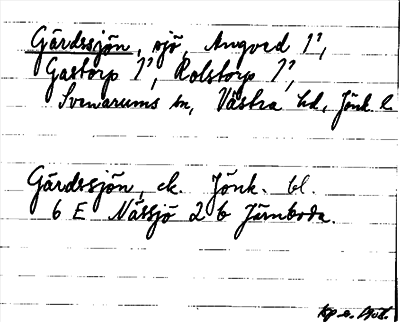 Gärdssjön, sjö, Angved 1²,
Gastorp 1², Rolstorp 1²,
Svenarums sn, Västra hd, Jönk. l.
Gärdssjön, ek. Jönk. bl.
6 E Nässjö 2 b Järnboda.